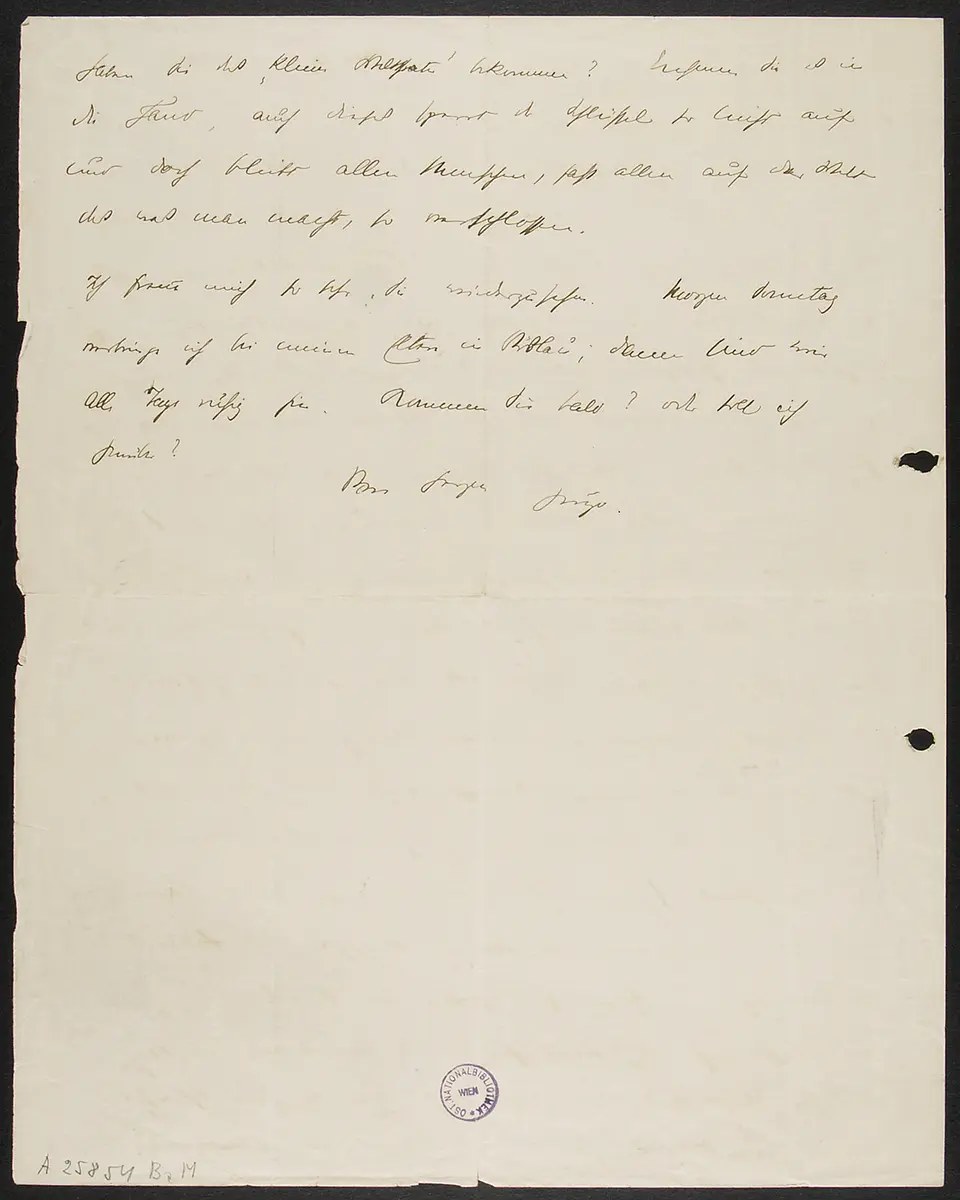 Haben Sie das „kleine Welttheater" bekommen? Nehmen Sie es in
die Hand, auch dieses sperrt der Schlüssel so leicht auf
und doch bleibt allen Menschen, fast allen auf der Welt
das was man macht, so verschlossen.
Ich freue mich so sehr, Sie wiederzusehen. Morgen Sonntag
verbringe ich bei meinen Eltern in Vöslau; dann sind wir
alle Tage ruhig hier. Kommen Sie bald? oder soll ich
?
Von Herzen Hugo.
ÖST. NATIONALBIBLIOTHEK WIEN
A 25854 B. M